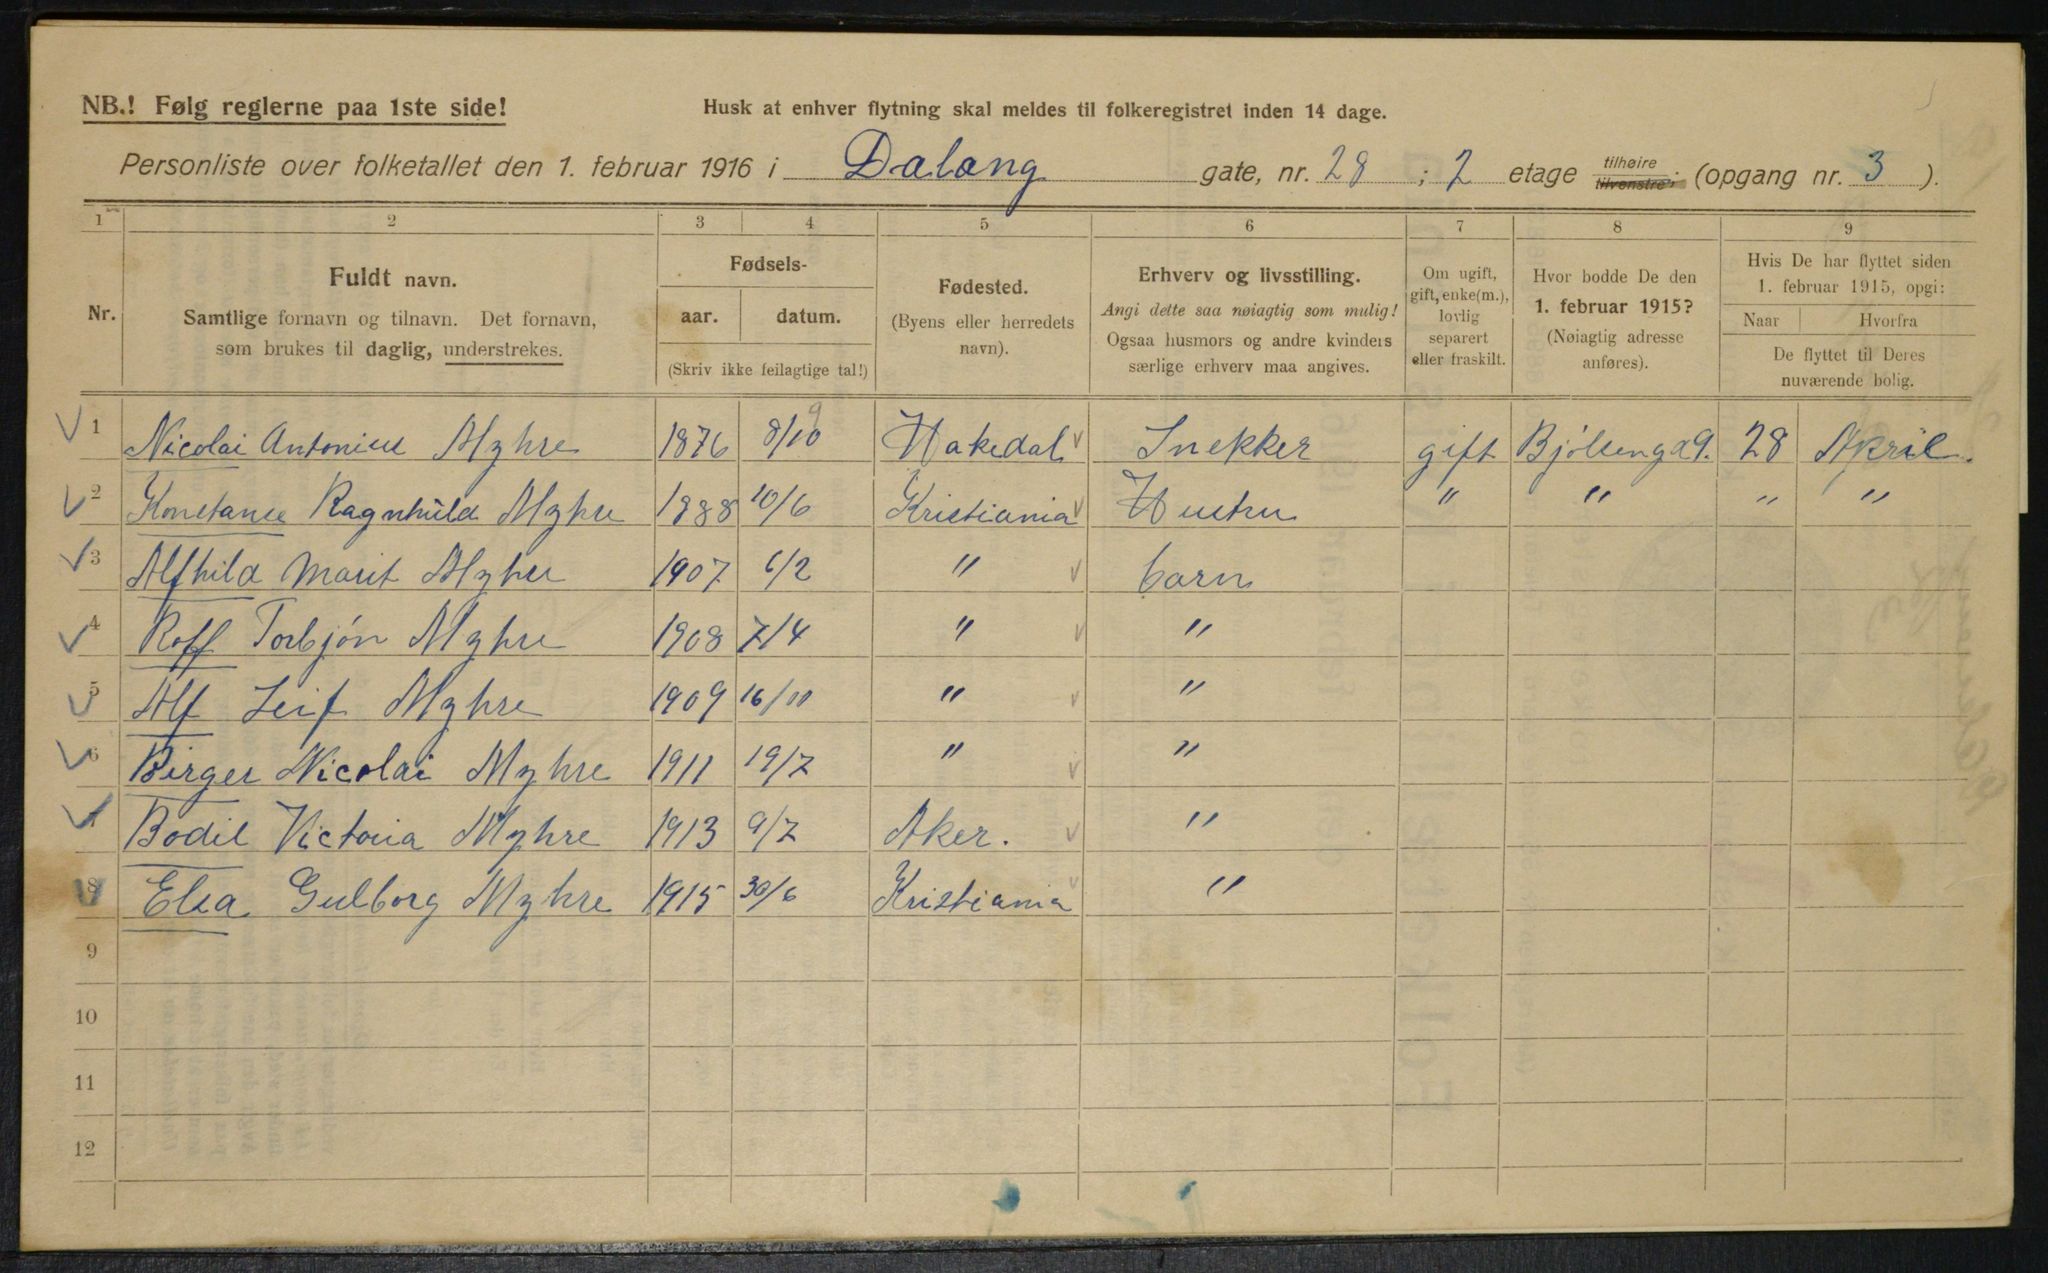 NB.! Følg reglerne paa 1ste side!
Husk at enhver flytning skal meldes til folkeregistret inden 14 dage.
Personliste over folketallet den 1. februar 1916 i Dalang gate, nr. 28 ; 2 etage tilhøire tilvenstre; (opgang nr. 3 ).
1 2 3 4 5 6 7 8 9
Nr.
Fuldt navn.
Samtlige fornavn og tilnavn. Det fornavn,
som brukes til daglig, understrekes.
Fødsels-
aar. datum.
(Skriv ikke feilagtige tal!)
Fødested.
(Byens eller herredets
navn).
Erhverv og livsstilling.
Angi dette saa nøiagtig som mulig!
Ogsaa husmors og andre kvinders
særlige erhverv maa angives.
Om ugift,
gift, enke(m.),
lovlig
separert
eller fraskilt.
Hvor bodde De den
1. februar 1915?
(Nøiagtig adresse
anføres).
Hvis De har flyttet siden
1. februar 1915, opgi:
Naar Hvorfra
De flyttet til Deres
nuværende bolig.
1 Nicolai Antonius Myhre 1876 8/10 Hakedal Snekker gift Bjölsengag. 28 April.
2 Konstanse Ragnhild Myhre 1888 10/6 Kristiania Hustru " " " "
3 Alfhild Marit Myhre 1907 6/2 " barn
4 Rolf Torbjön Myhre 1908 7/4 " "
5 Alf Leif Myhre 1909 16/11 " "
6 Birger Nicolai Myhre 1911 19/7 " "
7 Bodil Victoria Myhre 1913 9/7 Aker. "
8 Elsa Gulborg Myhre 1915 30/6 Kristiania "
9
10
11
12